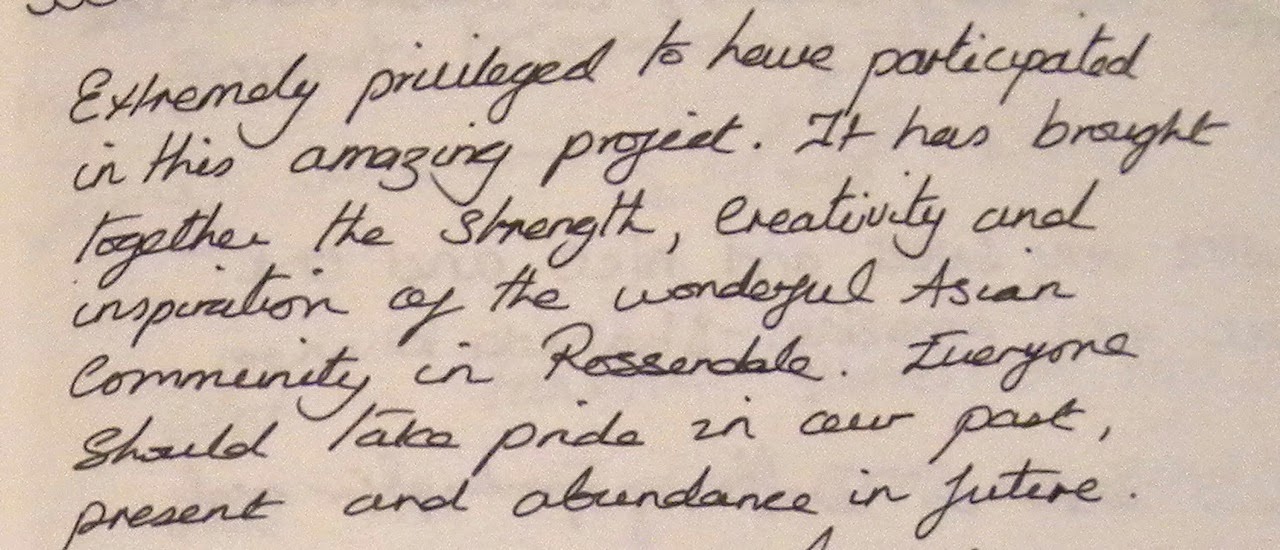 Extremely privileged to have participated
in this amazing project. It has brought
together the strength, creativity and
inspiration of the wonderful Asian
Community in Rossendale. Everyone
should take pride in our past,
present and abundance in future.